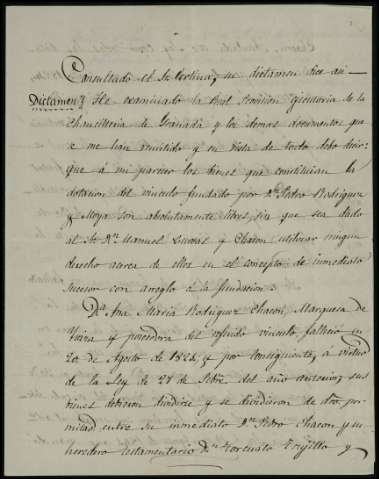 Consultado el Sr. Cortina, su dictamen dice así
Dictamen} He examinado la Real provisión ejecutoria de la
Chancillería de Granada y los demas documentos que
se me han remitido y en vista de todo debo decir:
que á mi parecer los bienes que constituian la
dotacion del vínculo fundado por Dn. Pedro Rodriguez
y Moya son absolutamente libres, sin que sea dado
al Sr. Dn. Manuel y Chacon utilizar ningun
derecho acerca de ellos en el concepto de inmediato
sucesor con arreglo á la fundacion.
Da. Ana María Rodriguez Chacon, Marquesa de
y poseedora del referido vínculo, falleció en
20 de Agosto de 1821, y por consiguiente, á virtud
de la Ley de 27 de Setre. del año anterior, sus
bienes debieron dividirse y se dividieron de dro. por
mitad entre su inmediato Dn. Pedro Chacon y su
heredero testamentario Dn. Fortunato Trujillo y